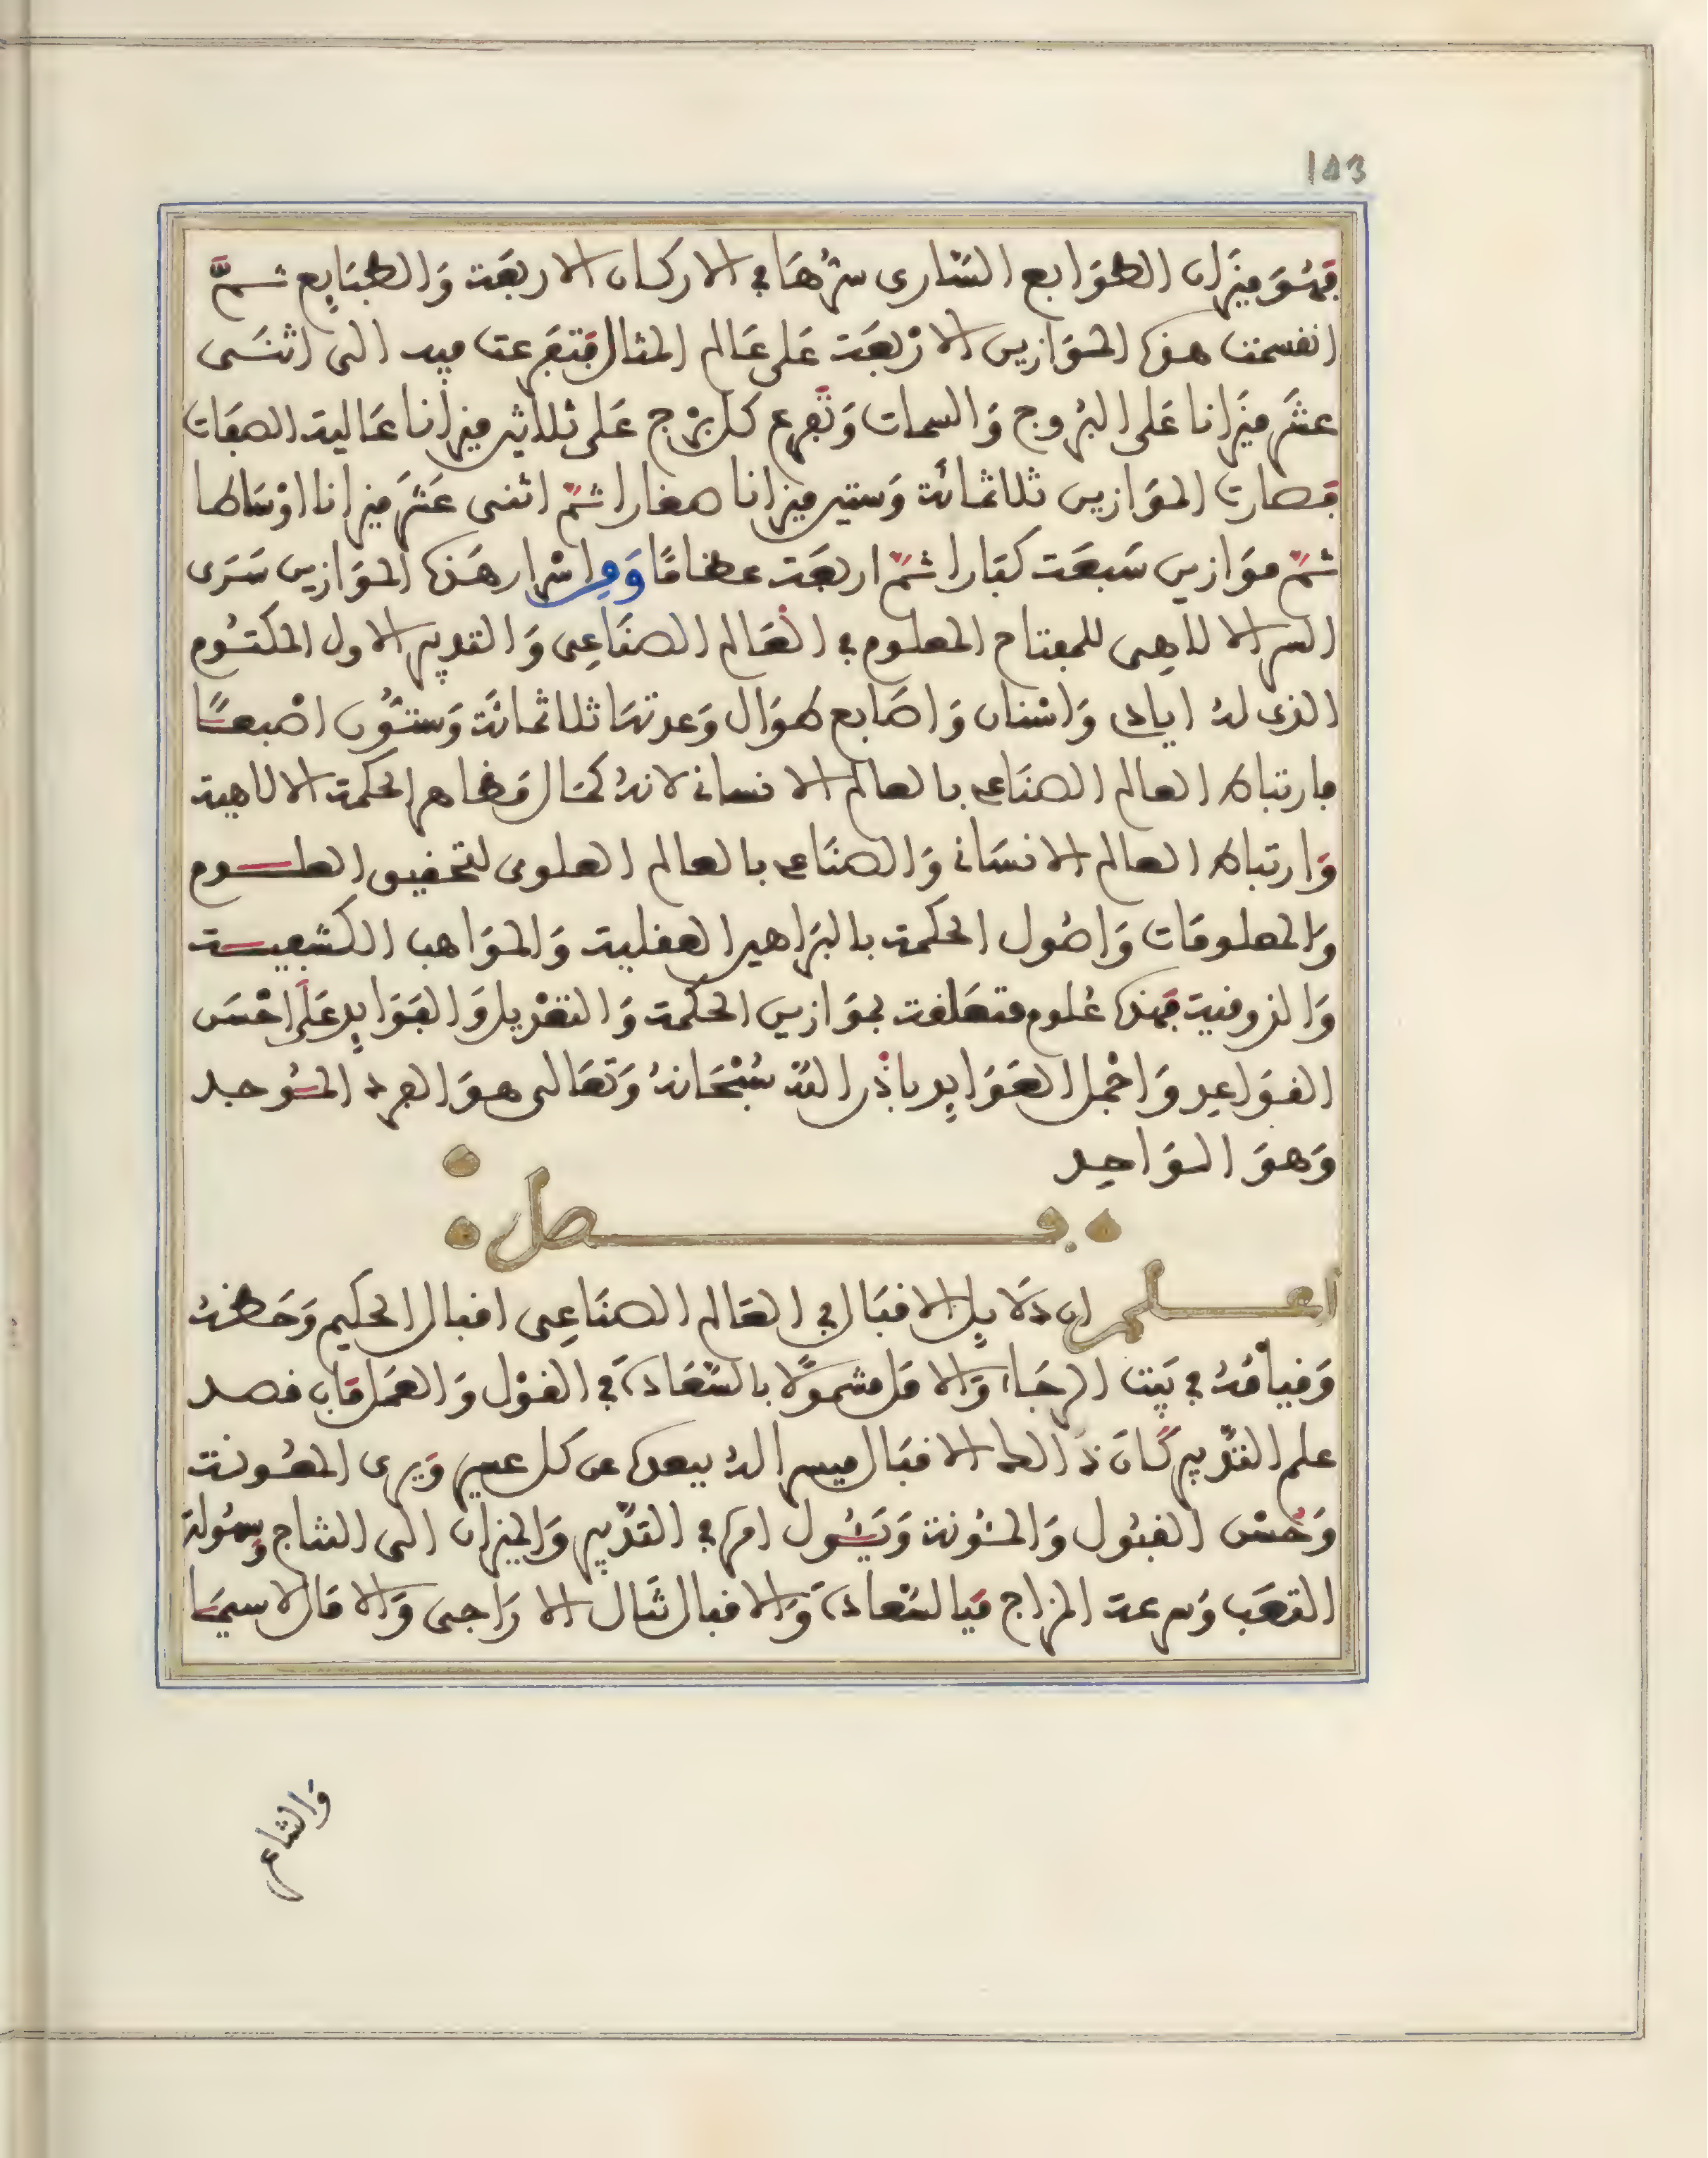 103
فهُوَ ميزَان الطوَابع السَّارى سرُّهَا في الاركان الاربعَة وَالطبَايِع ثــمَّ
انقسمت هذه الموَازين الارْبعَة عَلى عَالم المثال فتفرعت فيه الى اثنَـى
عشَر ميزَانا عَلى البُروج وَالسمات وَتفرع كل برْج عَلى ثلاثين ميزانا عَالية الصفَات
فصارت الموَازين ثلاثمائة وَستين ميزانا صغارا ثمّ اثنى عَشَر ميزانا اوْسَاطا
ثمّ موَازين سَبعَة كبَارا ثمّ اربعَة عظامًا وَمِن اسْرار هَذه الموَازين سَرَى
السر الالاهِى للمفتاح المعلوم في العَالم الصنَاعِى وَالتدبير الاول المكتُوم
الذى لهُ ايادى وَاسْنان وَاصَابع طوَال وَعدتهَا ثلاثمائَة وَستُّون اصْبعـًا
فارتباط العالم الصنَاعى بالعالم الانسانى لانهُ كمَال مَظاهر الحكمة الالاهية
وَارتباط العالم الانسَانى وَالصنَاعى بالعالم العلوى لتحقيق العلــوم
وَالمعلومَات وَاصُول الحكمة بالبَراهين العقلية وَالموَاهب الكشفيــة
وَالذوقية فهذه عُلوم متعَلقة بموَازين الحكمة وَالتعْديل وَالفوَايِد عَلَى احْسَن
القوَاعِد وَاجْمل العَوَايِد باذْن الله سُبْحَانهُ وَتعَالى هوَ الفرد المُوجد
وَهوَ الوَاحِد
فــــصل
اعــلم ان دَلايِل الاقبَال في العَالم الصنَاعِى اقبال الحكيم وَحَظهُ
وَقيامُهُ في بَيت الرجَاء وَالامَل مشمولًا بالسَّعَادَة في القوْل وَالعمَل فان قصد
علم التدْبير كَانَ ذَالك الاقبَال ميسرا لهُ يبعده عن كل عسير وَيرى المعُونة
وَحُسْن القبُول وَالمئُونة وَيَئُـول امره في التدْبير وَالميزان الى النتاج وسهُولة
التعَب وَسرعة المزاج فبالسّعادَة وَالاقبال تنَال الارَاجى وَالامَال لاسيمَا
وَالشاعر